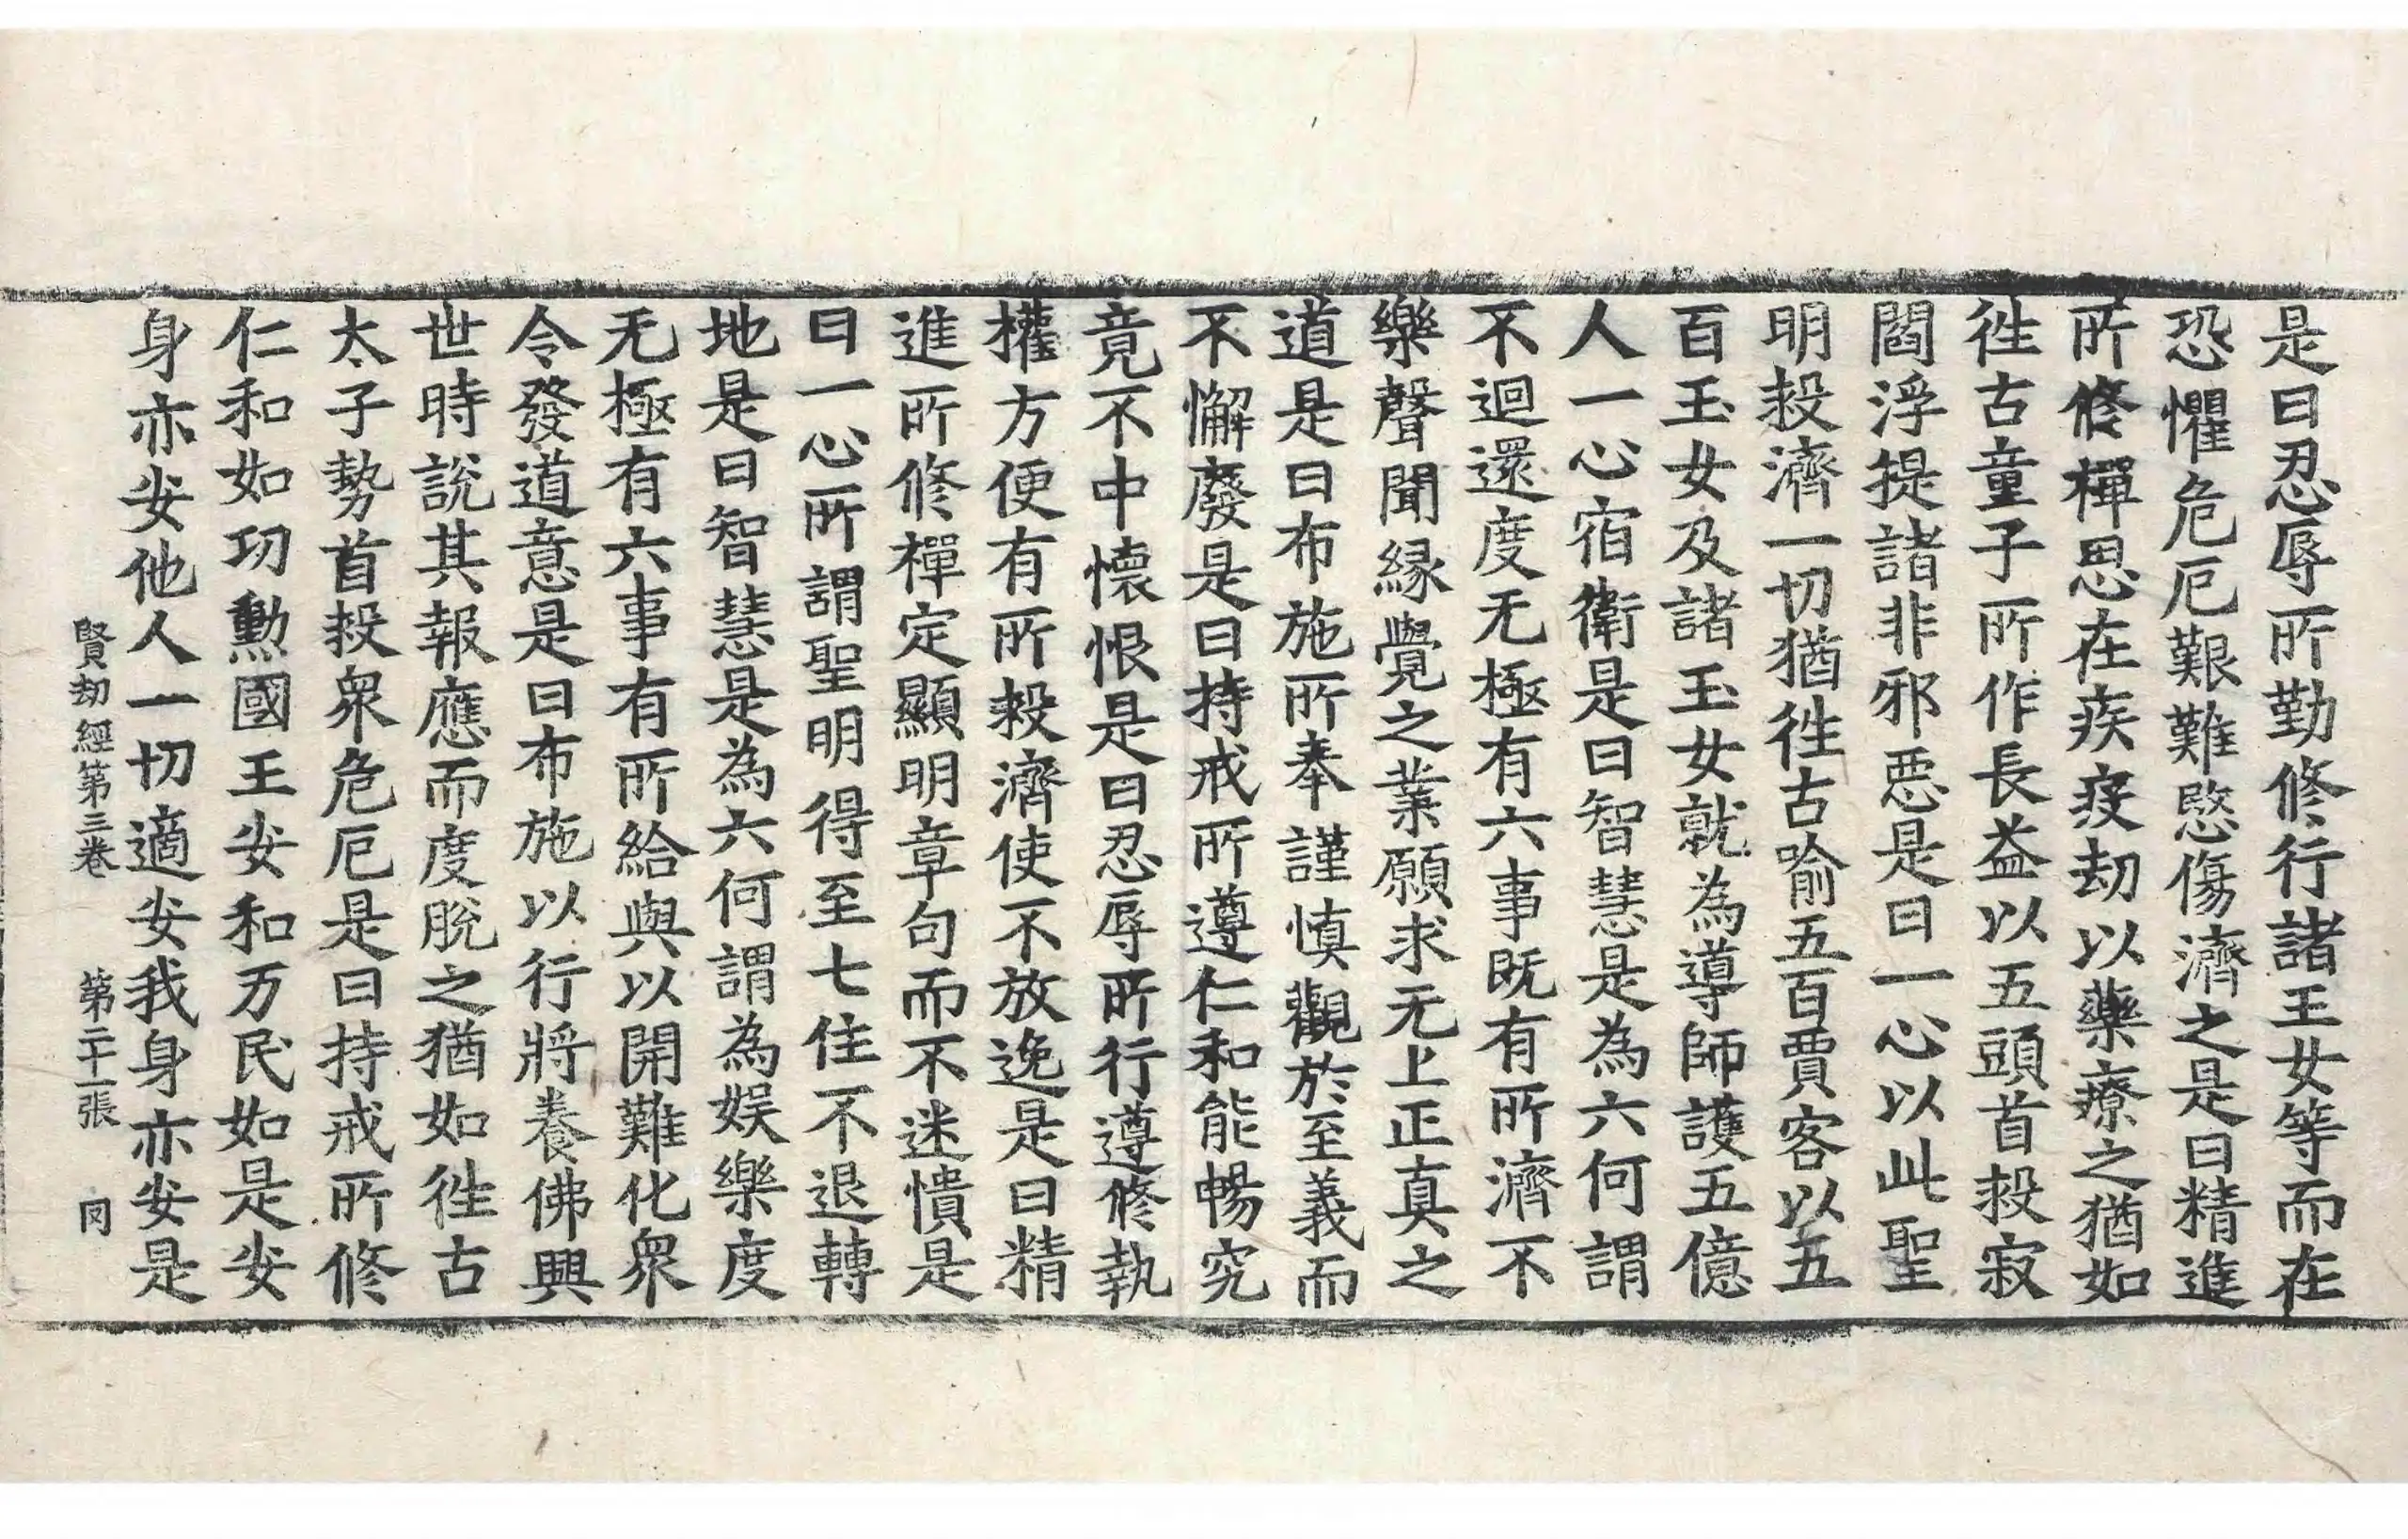 是曰忍辱所勤修行諸王女等而在
恐懼危厄艱難愍傷濟之是曰精進
所修禪思在疾疫劫以藥療之猶如
徃古童子所作長益以五頭首㪇寂
閻浮提諸非邪惡是曰一心以此聖
明㪇濟一切猶徃古喻五百賈客以五
百玉女及諸玉女就為導師護五億
人一心宿衛是曰智慧是為六何謂
不迴還度无極有六事既有所濟不
樂聲聞緣覺之業願求无上正真之
道是曰布施所奉謹慎觀於至義而
不懈廢是曰持戒所遵仁和能暢究
竟不中懷恨是曰忍辱所行遵修執
權方便有所㪇濟使不放逸是曰精
進所修禪定顯明章句而不迷憒是
曰一心所謂聖明得至七住不退轉
地是曰智慧是為六何謂為娛樂度
无極有六事有所給與以開難化衆
令發道意是曰布施以行將養佛興
世時說其報應而度脫之猶如徃古
太子勢首㪇衆危厄是曰持戒所修
仁和如功勳國王安和万民如是安
身亦安他人一切適安我身亦安是
賢劫經第三卷 第二十一張 同